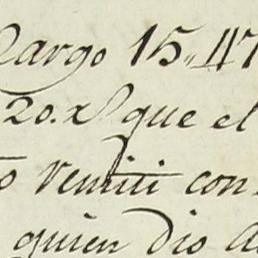 Cargo 15,,47
20. x que el
o remiti con
quien dio a